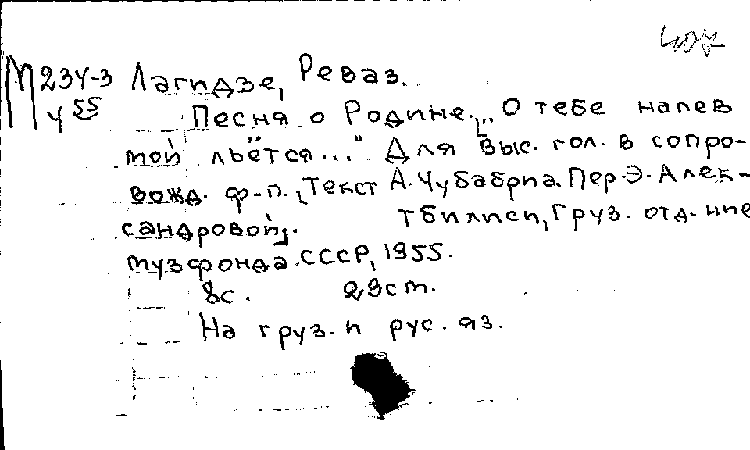 М 234-3 Лагидзе, Реваз.
455
Песня о Родине. "О тебе напев
мой льётся..." Для выс. гол. в сопро-
вожд. ф-п., Текст А. Чубабриа. Пер. Э. Алек-
сандровой]. Тбилиси, Груз. отд-ние
музфонда СССР, 1955.
8с. 29cm.
На груз. и рус. яз.